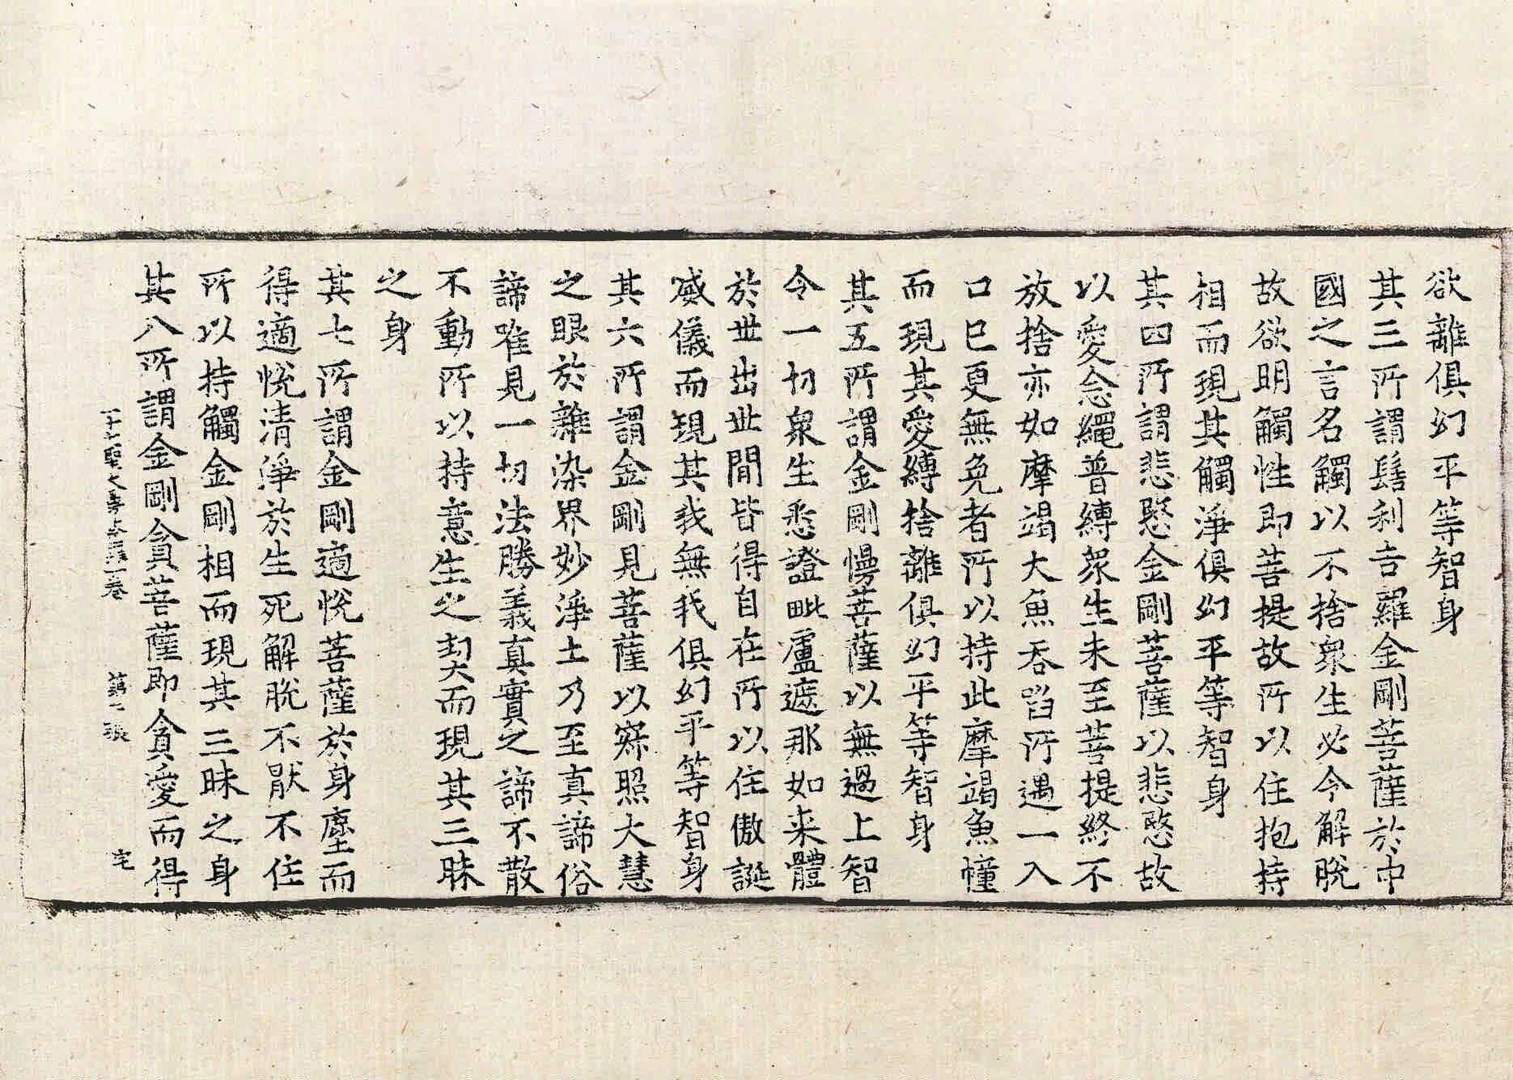 欲離俱幻平等智身
其三所謂髻利吉羅金剛菩薩於中
國之言名觸以不捨衆生必令解脫
故欲明觸性即菩提故所以住抱持
相而現其觸淨俱幻平等智身
其四所謂悲愍金剛菩薩以悲愍故
以愛念繩普縛衆生未至菩提終不
放捨亦如摩竭大魚吞啗所遇一入
口已更無免者所以持此摩竭魚幢
而現其愛縛捨離俱幻平等智身
其五所謂金剛慢菩薩以無過上智
令一切衆生悉證毗盧遮那如来體
於世出世間皆得自在所以住傲誕
威儀而現其我無我俱幻平等智身
其六所謂金剛見菩薩以寂照大慧
之眼於雜染界妙淨土乃至真諦俗
諦唯見一切法勝義真實之諦不散
不動所以持意生之契而現其三昧
之身
其七所謂金剛適悅菩薩於身塵而
得適悅清淨於生死解脫不厭不住
所以持觸金剛相而現其三昧之身
其八所謂金剛貪菩薩即貪愛而得
十七聖大曼荼羅一卷 第二張 宅